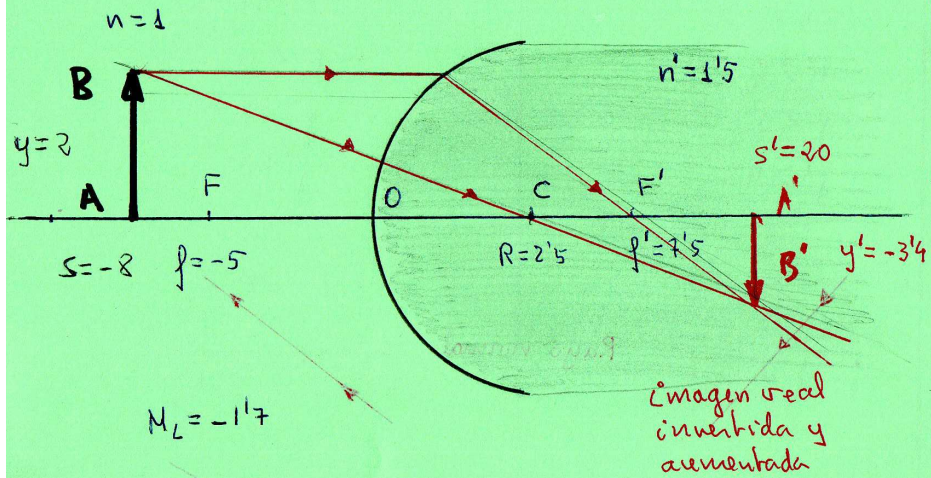 n=1
B
n'=1'5
y=2
s'=20
A
F
O
C
F'
A'
s=-8
f=-5
R=2'5
f'=7'5
B'
y'=-3'4
M_L=-1'7
imagen real
invertida y
aumentada